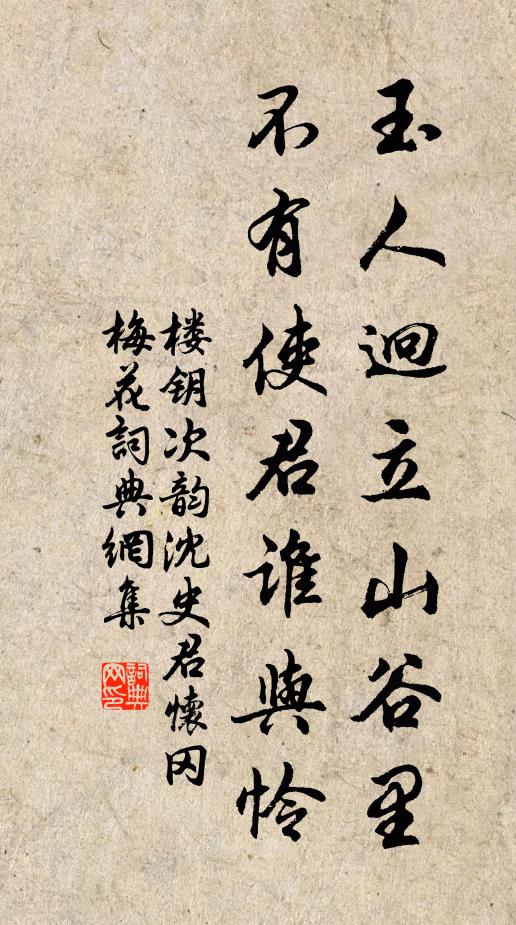 玉人迥立山谷里
不有使君谁與怜
楼钥次韵沈史君懷冈
梅花詞典網集
詞典网印